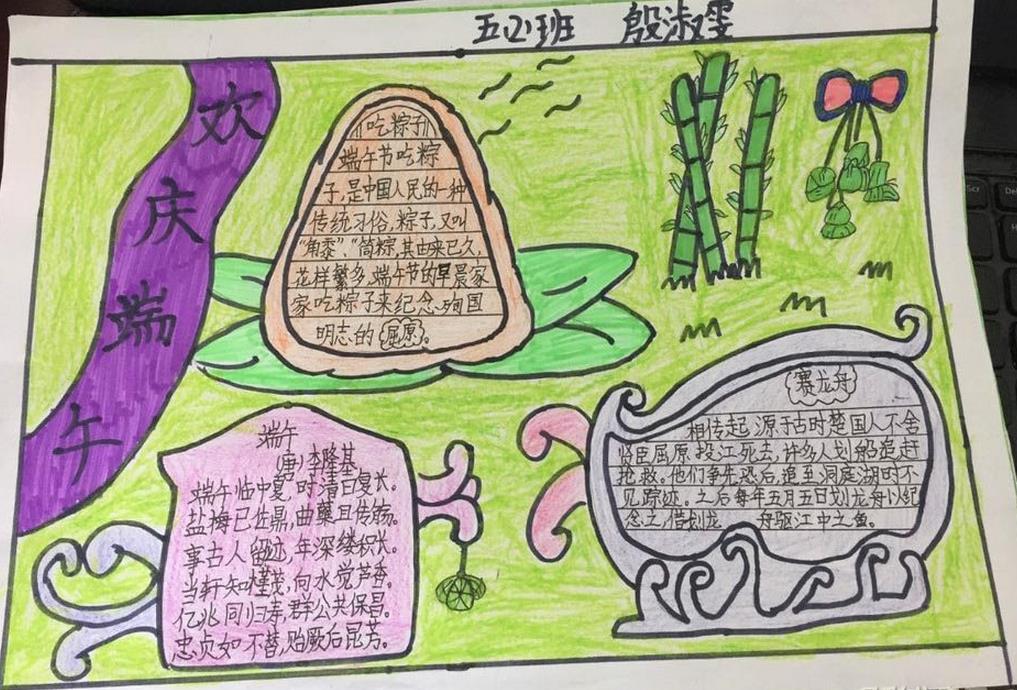 五(2)班 殷淑雯
欢庆端午
吃粽子
端午节吃粽
子,是中国人民的一种
传统习俗,粽子,又叫
“角黍”、“筒粽,其由来已久,
花样繁多,端午节的早晨家
家吃粽子来纪念殉国
明志的屈原。
端午
(唐)李隆基
端午临中夏,时清日复长。
盐梅已佐鼎,曲糵且传觞。
事古人留迹,年深缕积长。
当轩知槿茂,向水觉芦香。
亿兆同归寿,群公共保昌。
忠贞如不替,贻厥后昆芳。
赛龙舟
相传起源于古时楚国人不舍
贤臣屈原投江死去,许多人划船追赶
抢救。他们争先恐后,追至洞庭湖时不
见踪迹。之后每年五月五日划龙舟以纪
念之,借划龙舟驱江中之鱼。